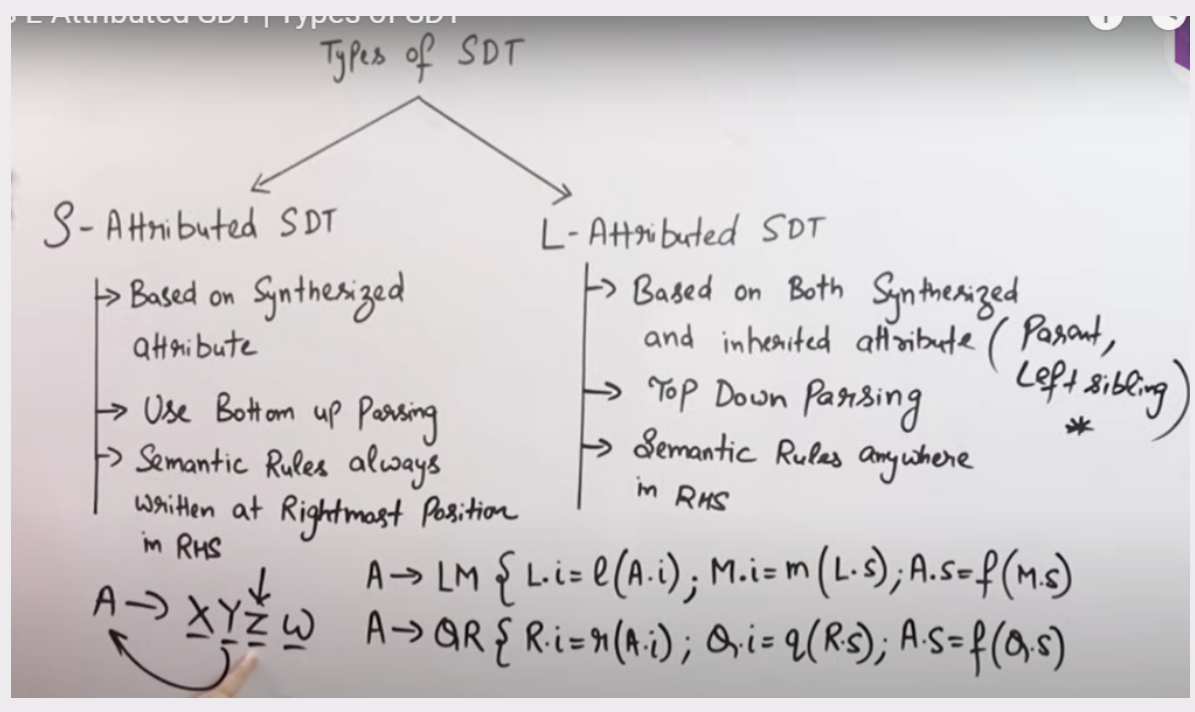 L Attributed SDT | Types of SDT
Types of SDT
S-Attributed SDT
→ Based on Synthesized
attribute
→ Use Bottom up Parsing
→ Semantic Rules always
written at Rightmost Position
in RHS
A → X Y Z W
L-Attributed SDT
→ Based on Both Synthesized
and inherited attribute (Parant,
Left sibling)
*
→ Top Down Parsing
→ Semantic Rules anywhere
in RHS
A → LM { L.i = l(A.i); M.i = m(L.s); A.s = f(M.s)
A → QR { R.i = r(A.i); Q.i = q(R.s); A.s = f(Q.s)